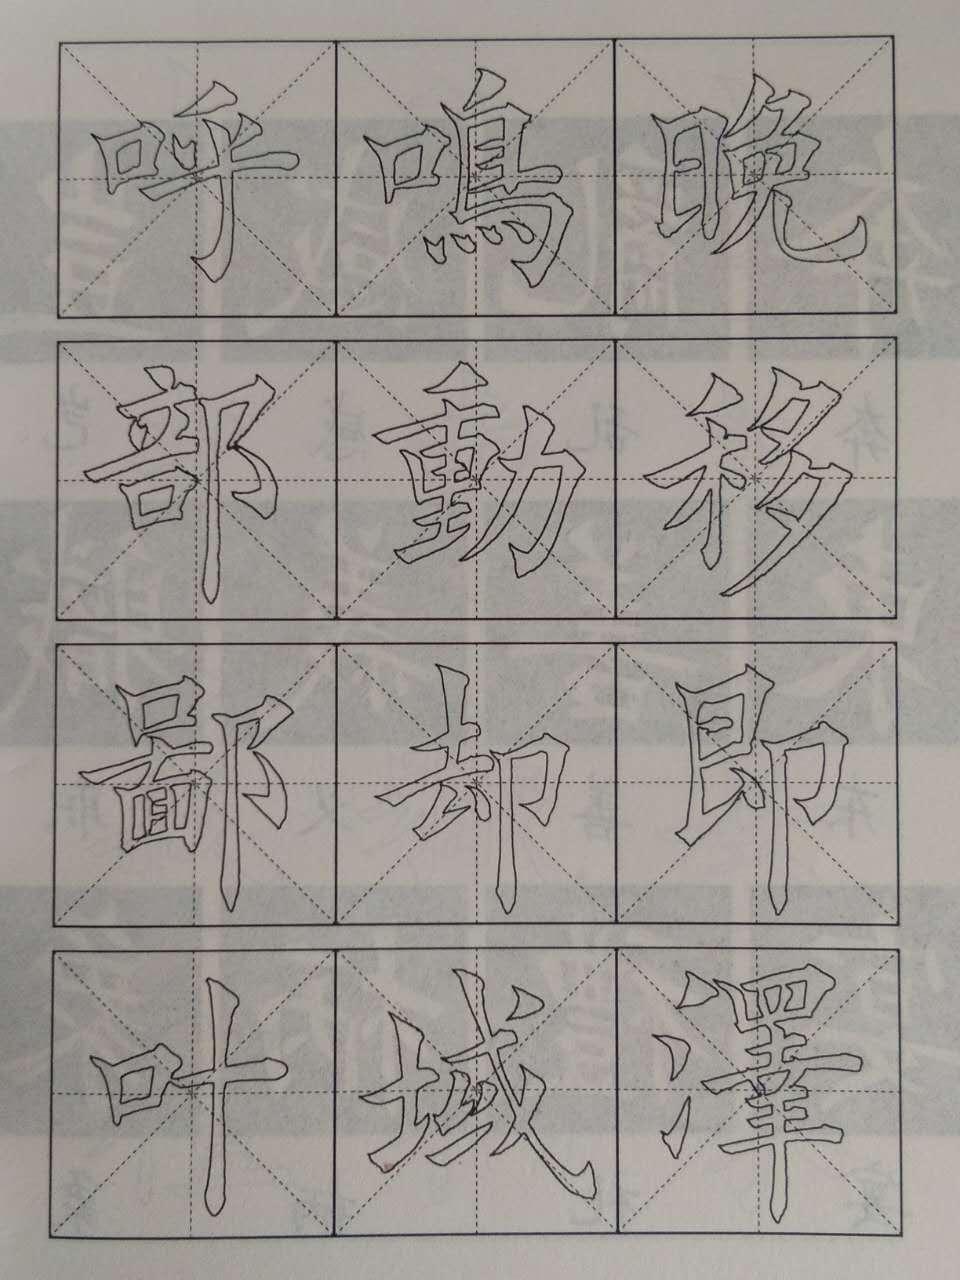 呼鳴晚
部動移
鄙却即
叶域澤